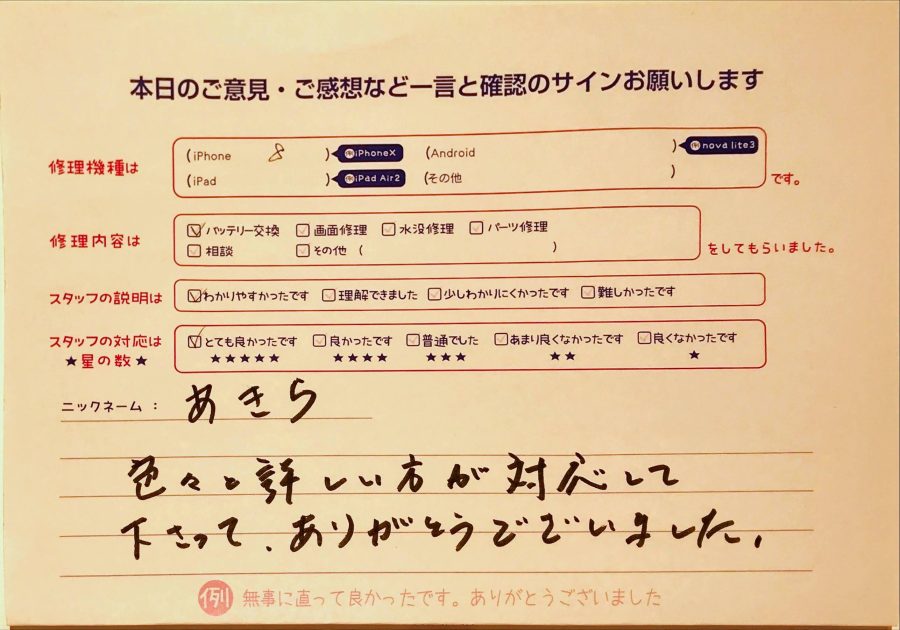 本日のご意見・ご感想など一言と確認のサインお願いします
修理機種は
(iPhone 8 ) 例 iPhoneX (Android ) 例 nova lite3
(iPad ) 例 iPad Air2 (その他 )
です。
修理内容は
バッテリー交換 画面修理 水没修理 パーツ修理
相談 その他 ( )
をしてもらいました。
スタッフの説明は
わかりやすかったです 理解できました 少しわかりにくかったです 難しかったです
スタッフの対応は
★星の数★
とても良かったです 良かったです 普通でした あまり良くなかったです 良くなかったです
★★★★★ ★★★★ ★★★ ★★ ★
ニックネーム: あきら
色々と詳しい方が対応して
下さって、ありがとうございました。
例 無事に直って良かったです。ありがとうございました